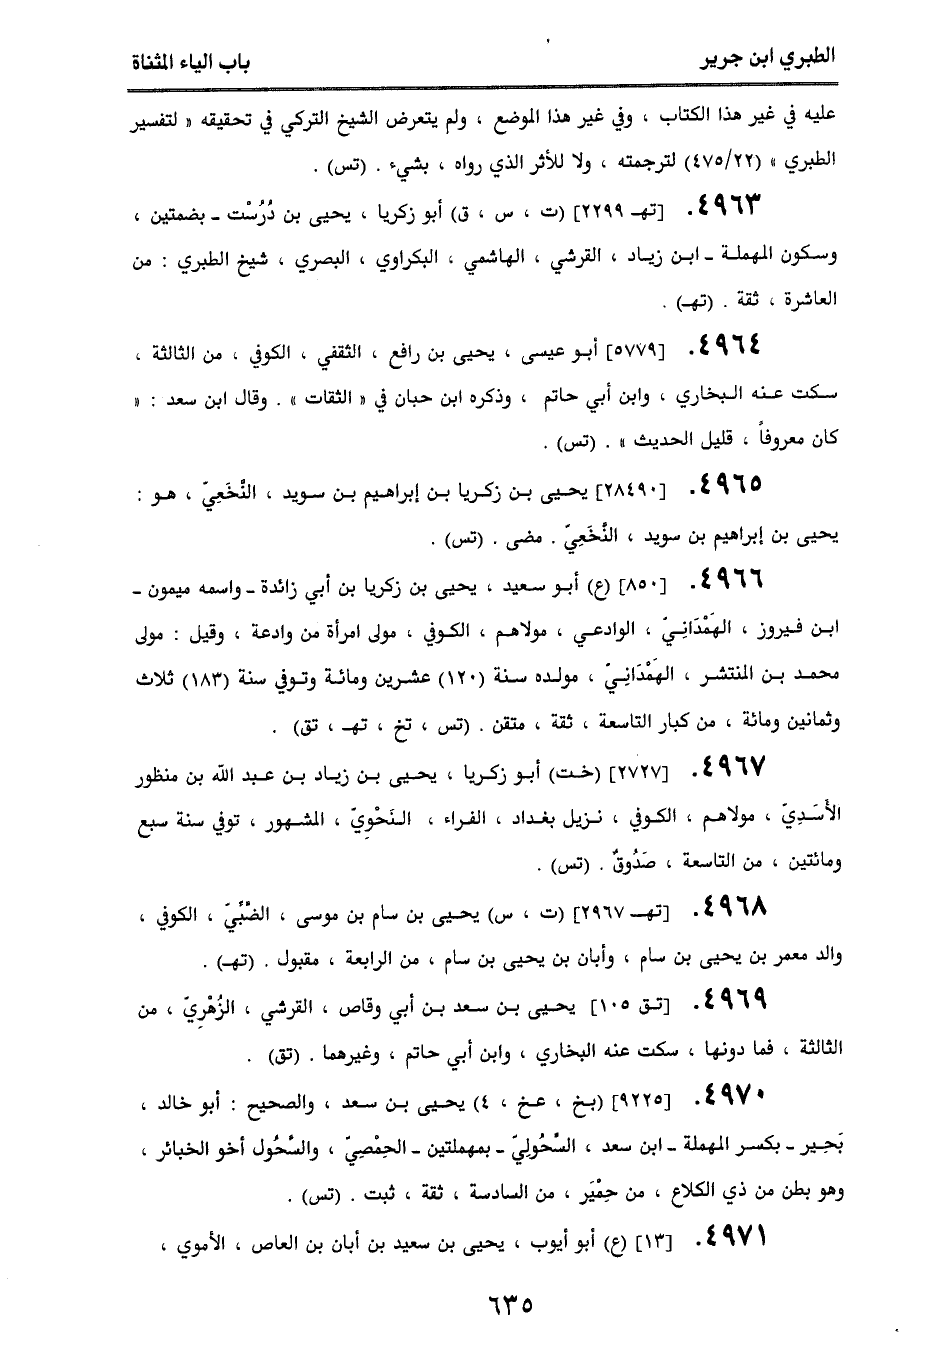 الطبري ابن جرير
باب الياء المثناة
عليه في غير هذا الكتاب ، وفي غير هذا الموضع ، ولم يتعرض الشيخ التركي في تحقيقه « لتفسير
الطبري » (٤٧٥/٢٢) لترجمته ، ولا للأثر الذي رواه ، بشيء . (تس) .
٤٩٦٣. [تهـ ٢٢٩٩] (ت ، س ، ق) أبو زكريا ، يحيى بن دُرُسْت ـ بضمتين ،
وسكون المهملة ـ ابن زياد ، القرشي ، الهاشمي ، البكراوي ، البصري ، شيخ الطبري : من
العاشرة ، ثقة . (تهـ) .
٤٩٦٤. [٥٧٧٩] أبو عيسى ، يحيى بن رافع ، الثقفي ، الكوفي ، من الثالثة ،
سكت عنه البخاري ، وابن أبي حاتم ، وذكره ابن حبان في « الثقات » . وقال ابن سعد : «
كان معروفاً ، قليل الحديث » . (تس) .
٤٩٦٥. [٢٨٤٩٠] يحيى بن زكريا بن إبراهيم بن سويد ، النَّخَعِيّ ، هو :
يحيى بن إبراهيم بن سويد ، النَّخَعِيّ . مضى . (تس) .
٤٩٦٦. [٨٥٠] (ع) أبو سعيد ، يحيى بن زكريا بن أبي زائدة ـ واسمه ميمون ـ
ابن فيروز ، الهَمْدَانِيّ ، الوادعي ، مولاهم ، الكوفي ، مولى امرأة من وادعة ، وقيل : مولى
محمد بن المنتشر ، الهَمْدَانِيّ ، مولده سنة (١٢٠) عشرين ومائة وتوفي سنة (١٨٣) ثلاث
وثمانين ومائة ، من كبار التاسعة ، ثقة ، متقن . (تس ، تخ ، تهـ ، تق) .
٤٩٦٧. [٢٧٢٧] (خت) أبو زكريا ، يحيى بن زياد بن عبد الله بن منظور
الأَسَدِيّ ، مولاهم ، الكوفي ، نزيل بغداد ، الفراء ، النَحْوِيّ ، المشهور ، توفي سنة سبع
ومائتين ، من التاسعة ، صَدُوقٌ . (تس) .
٤٩٦٨. [تهـ ٢٩٦٧] (ت ، س) يحيى بن سام بن موسى ، الضَّبِّيّ ، الكوفي ،
والد معمر بن يحيى بن سام ، وأبان بن يحيى بن سام ، من الرابعة ، مقبول . (تهـ) .
٤٩٦٩. [تق ١٠٥] يحيى بن سعد بن أبي وقاص ، القرشي ، الزُهْرِيّ ، من
الثالثة ، فما دونها ، سكت عنه البخاري ، وابن أبي حاتم ، وغيرهما . (تق) .
٤٩٧٠. [٩٢٢٥] (بخ ، عخ ، ٤) يحيى بن سعد ، والصحيح : أبو خالد ،
بَحِير ـ بكسر المهملة ـ ابن سعد ، السَّحُولِيّ ـ بمهملتين ـ الحِمْصِيّ ، والسَّحُول أخو الخبائر ،
وهو بطن من ذي الكلاع ، من حِمْيَر ، من السادسة ، ثقة ، ثبت . (تس) .
٤٩٧١. [١٣] (ع) أبو أيوب ، يحيى بن سعيد بن أبان بن العاص ، الأموي ،
٦٣٥